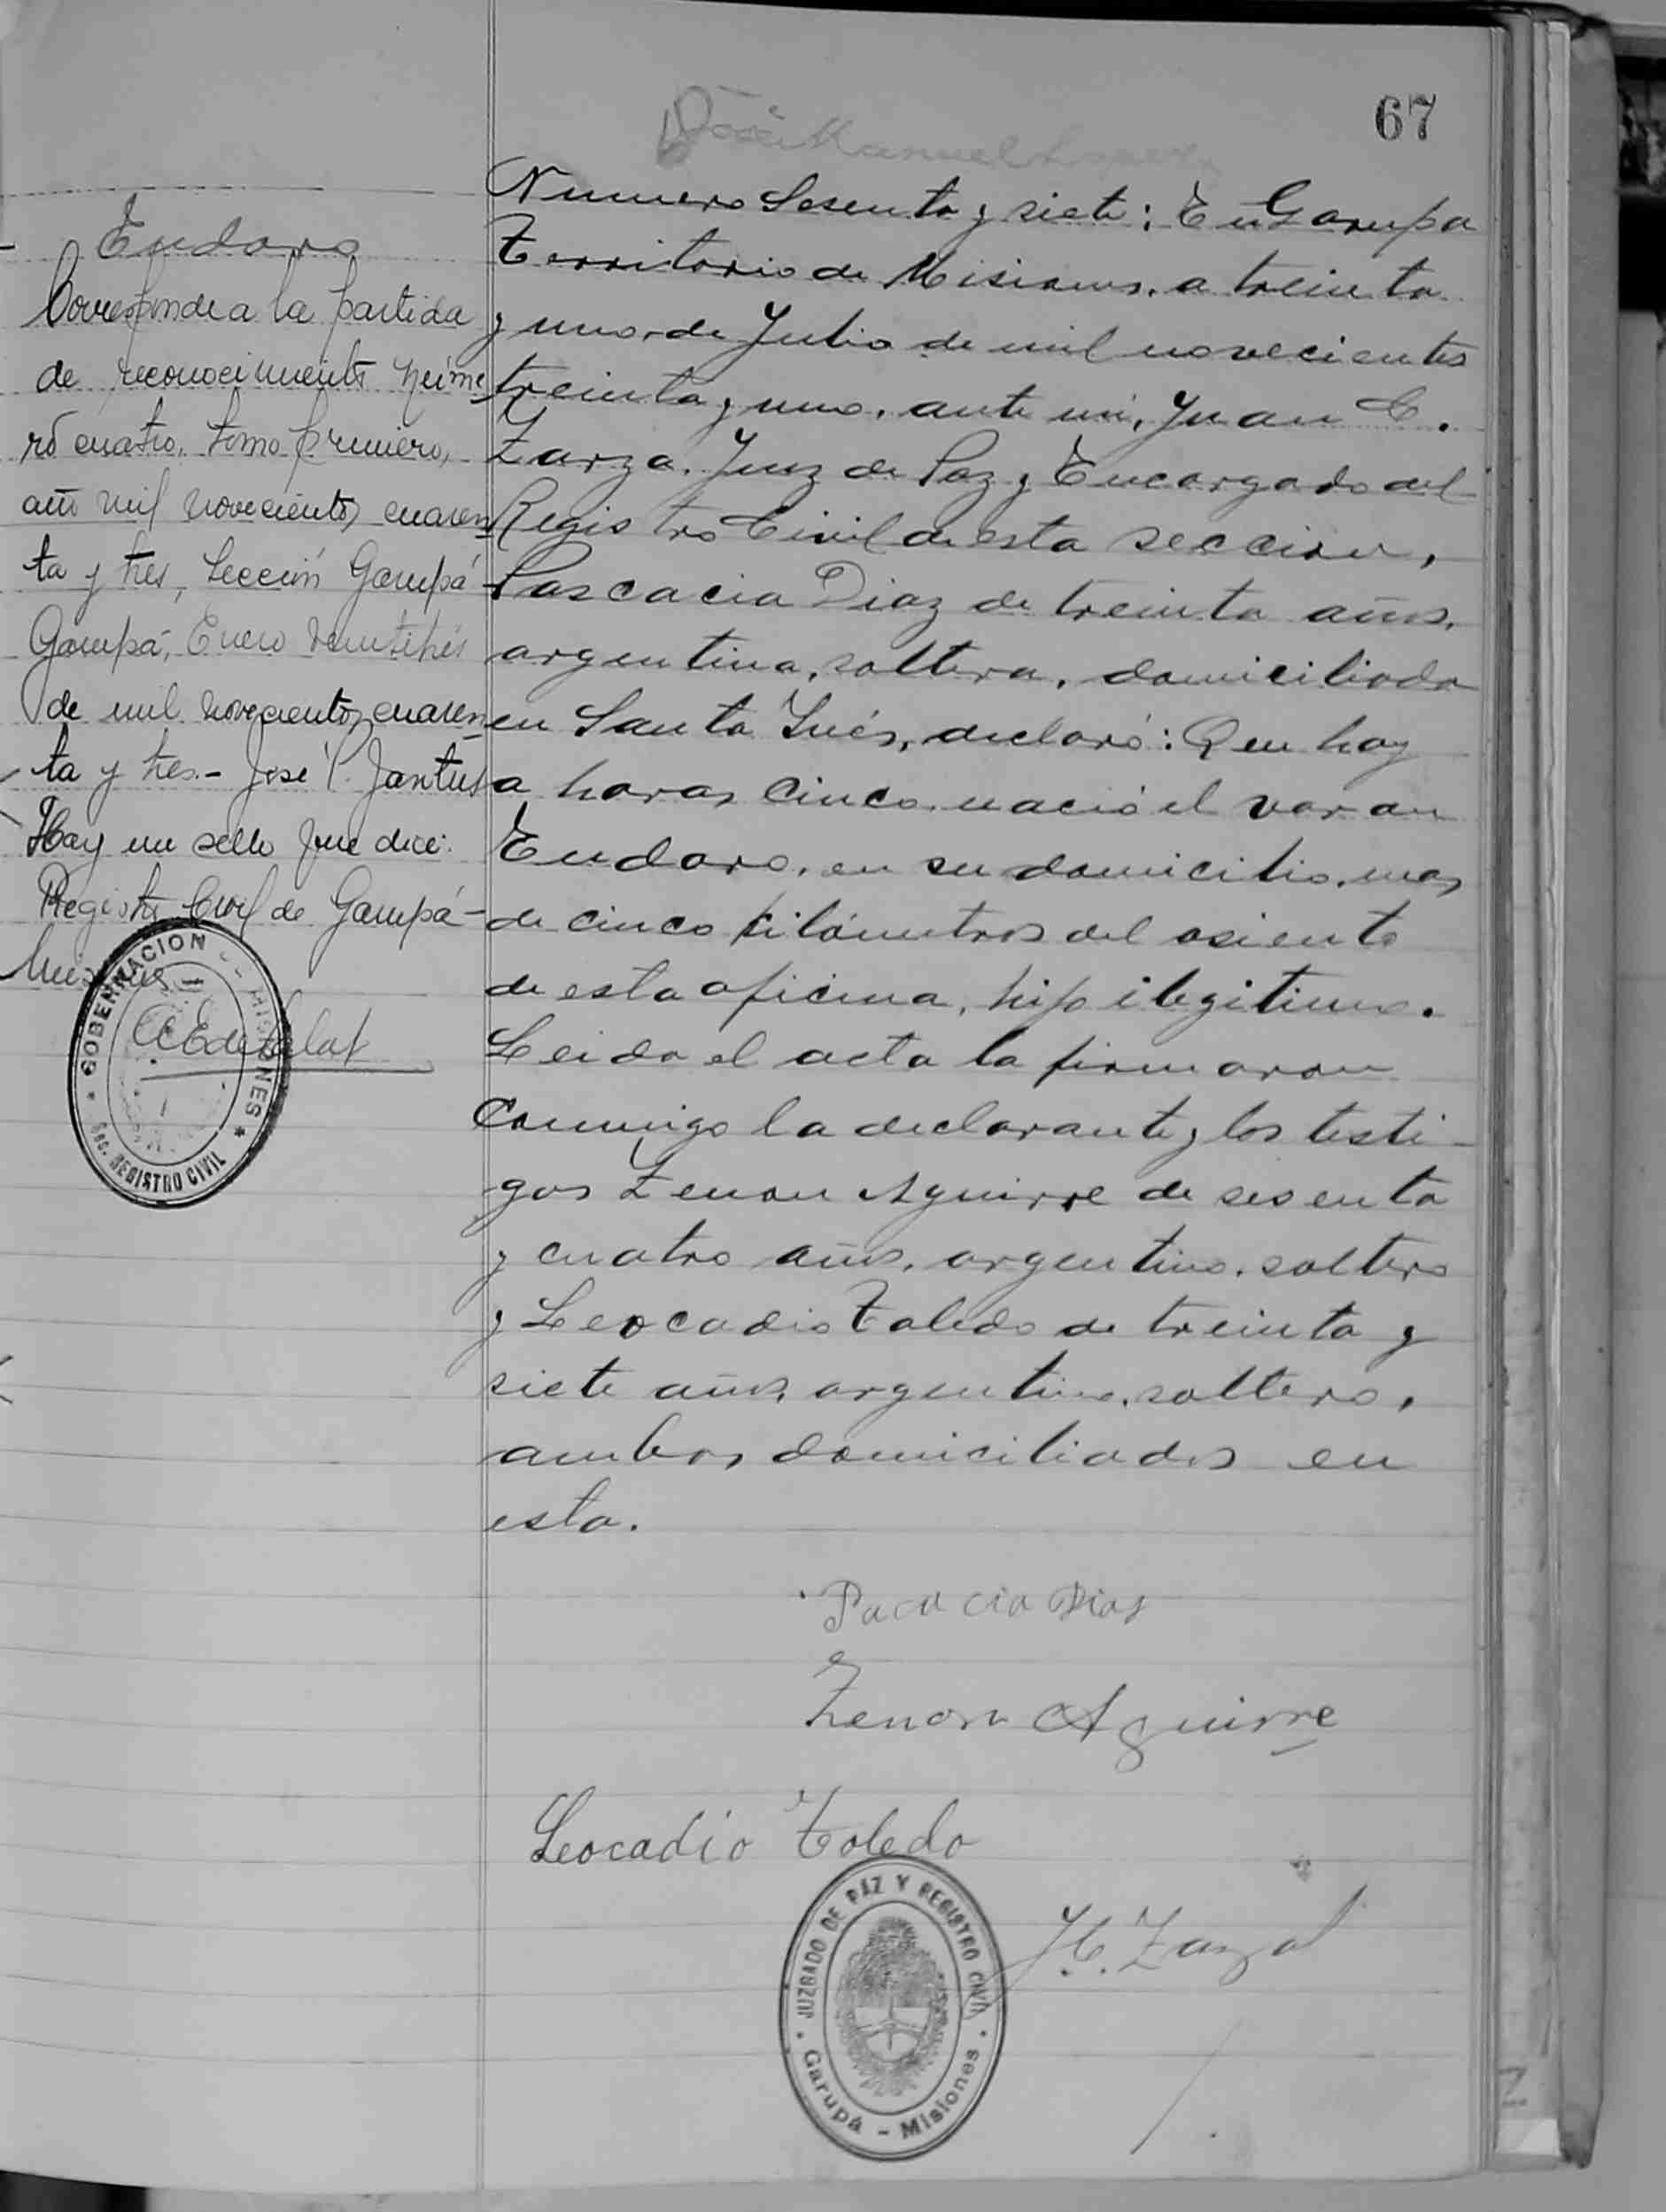 67
José Manuel
Numero Sesenta y siete: En Garupa
Territorio de Misiones, a treinta
y uno de Julio de mil novecientos
treinta y uno, ante mi, Juan C.
Zarza, Juez de Paz y Encargado del
Registro Civil de esta seccion,
Pascacia Diaz de treinta años,
argentina, soltera, domiciliada
en Santa Inés, declaró: Que hoy
a horas cinco nació el varon
Eudoro, en su domicilio, mas
de cinco kilómetros del asiento
de esta oficina, hijo ilegitimo.
Leida el acta la firmaron
conmigo la declarante y los testi-
gos Zenon Aguirre de sesenta
y cuatro años, argentino, soltero
y Leocadio Toledo de treinta y
siete años, argentino, soltero,
ambos domiciliados en
esta.
Pacacia Dias
Zenon Aguirre
Leocadio Toledo
J.C. Zarza
JUZGADO DE PAZ Y REGISTRO CIVIL
Garupá - Misiones
Eudoro
Corresponde a la partida
de reconocimiento núme
ro cuatro, tomo primero,
año mil novecientos cuaren
ta y tres, Sección Garupá
Garupá, Enero veintitrés
de mil novecientos cuaren
ta y tres.- José P. Jantus
Hay un sello que dice:
Registro Civil de Garupá-
Misiones-
GOBERNACION - MISIONES
Sec. REGISTRO CIVIL